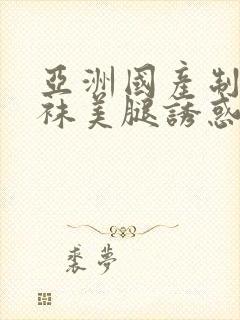 亞洲國產制
袜美腿誘惑
裘夢